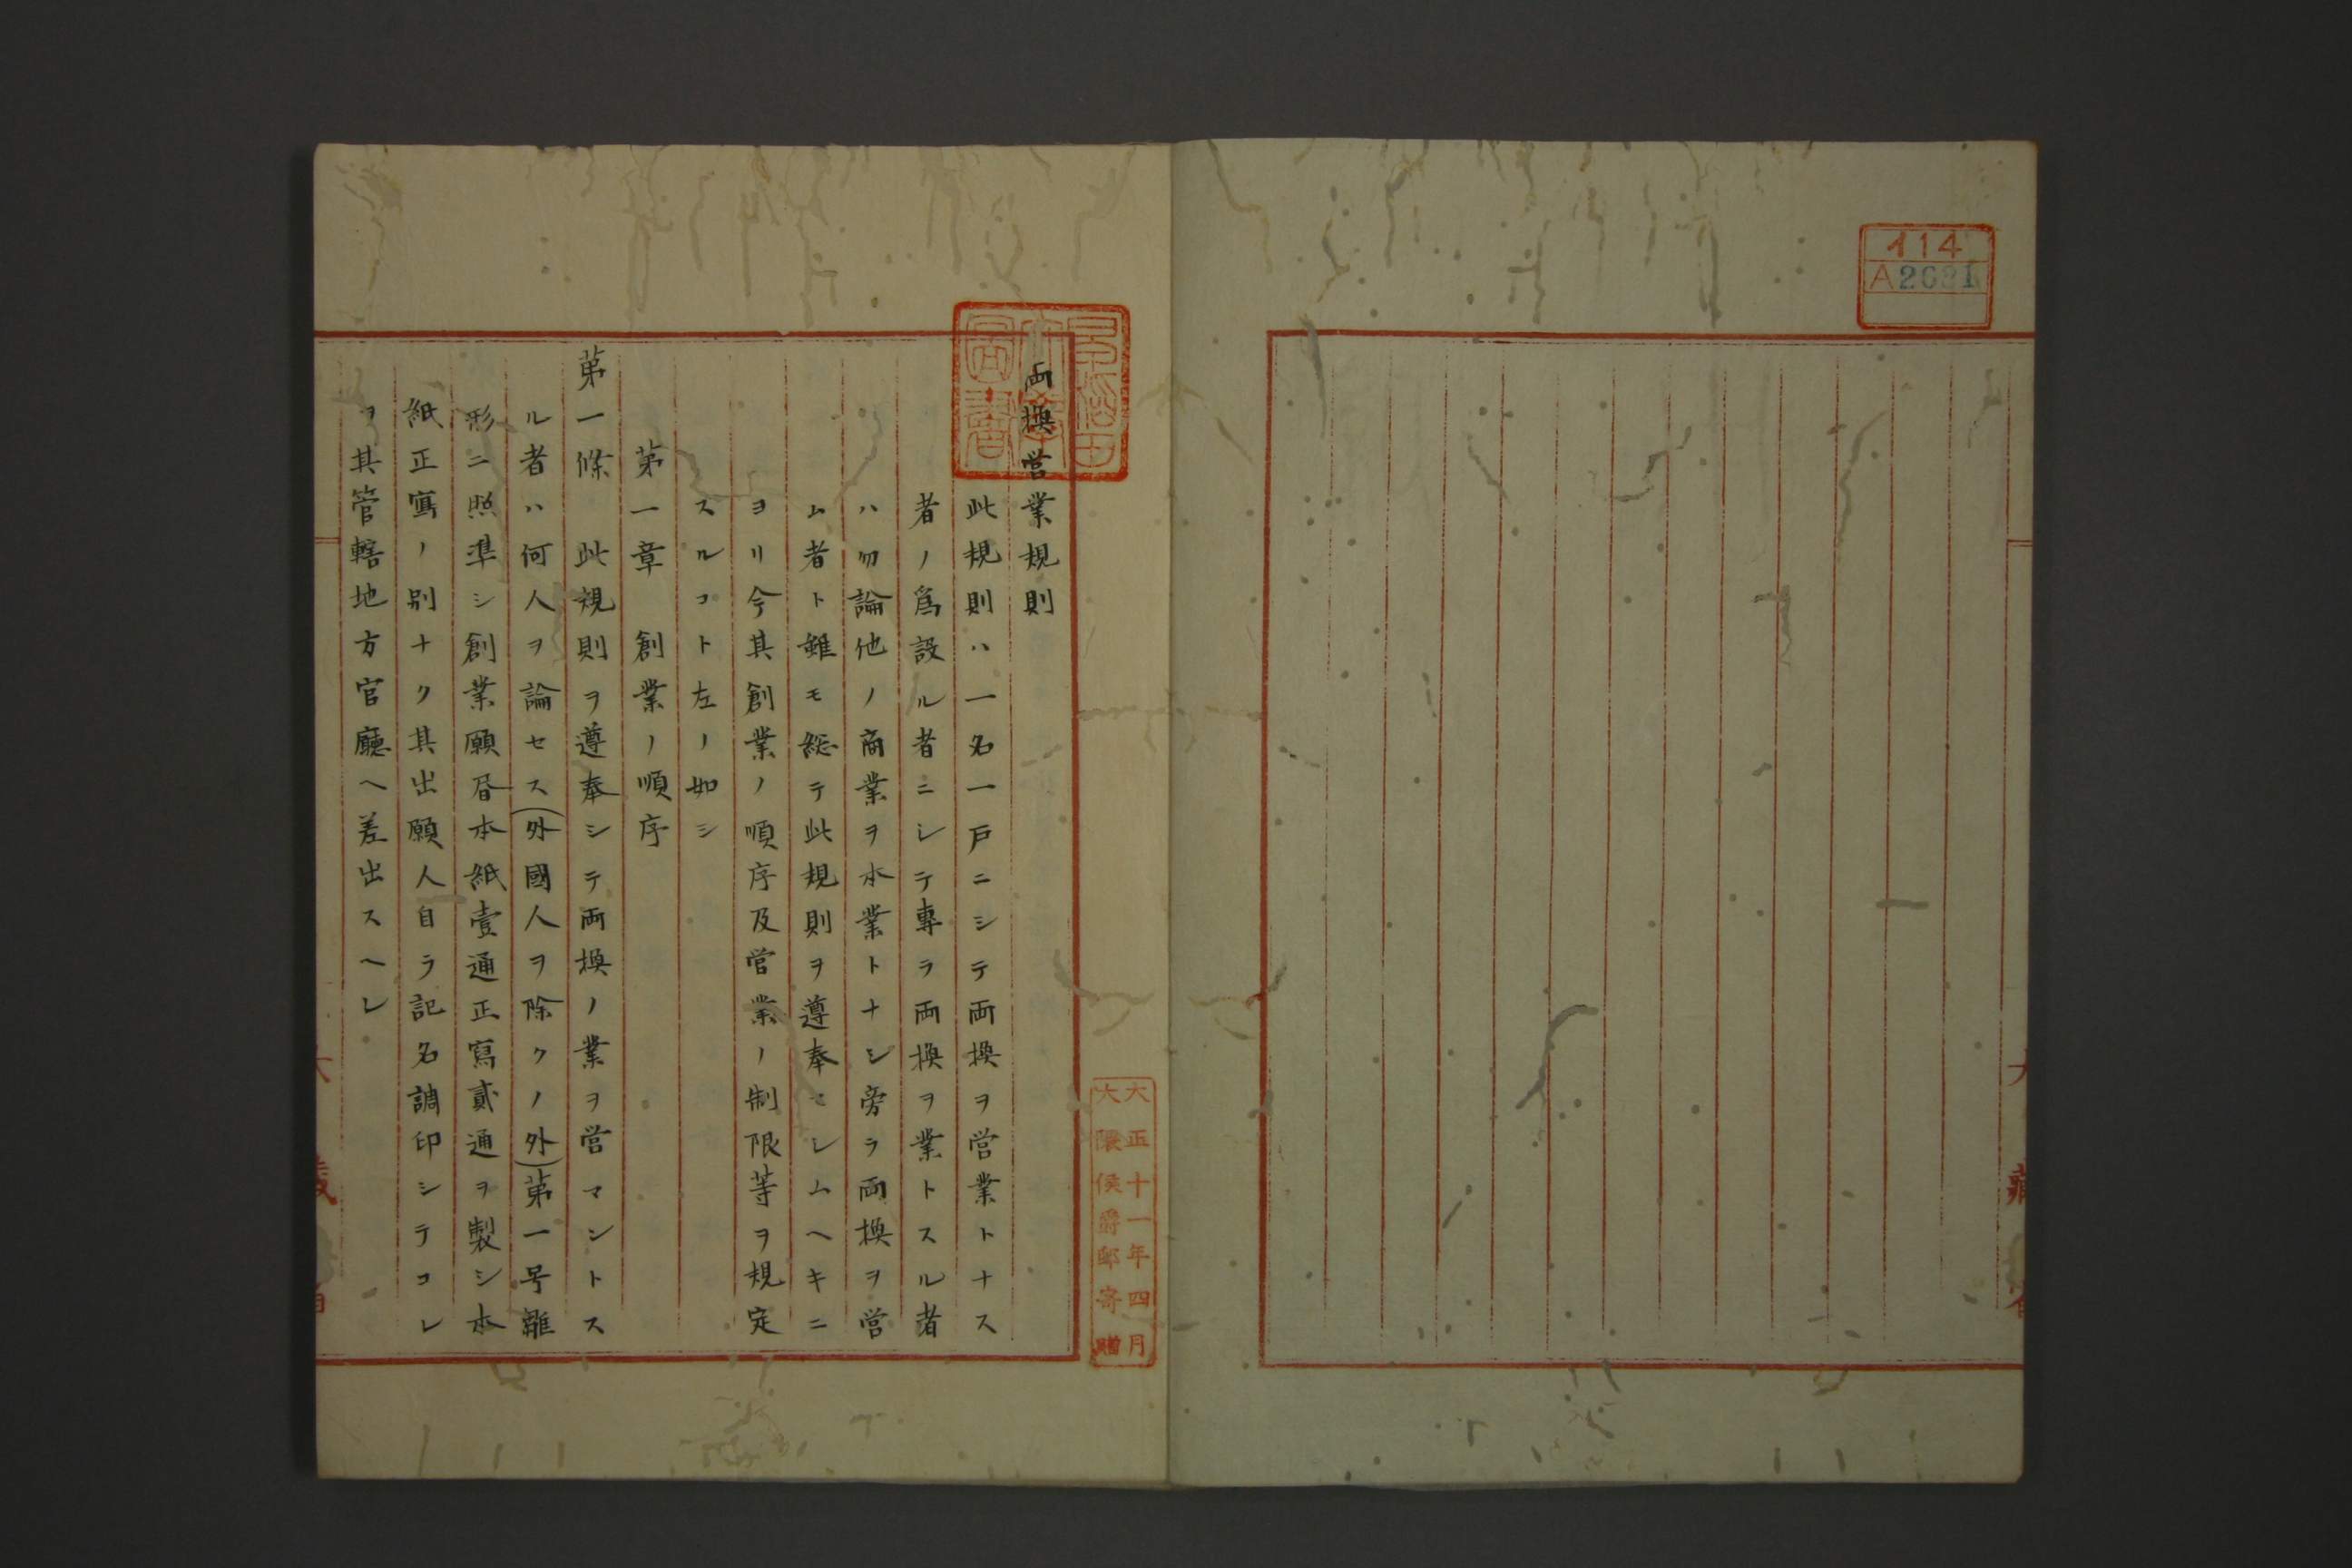 114
A2621
両換営業規則
此規則ハ一名一戸ニシテ両換ヲ営業トナス
者ノ為設ル者ニシテ専ラ両換ヲ業トスル者
ハ勿論他ノ商業ヲ本業トナシ旁ラ両換ヲ営
ム者ト雖モ総テ此規則ヲ遵奉セシムヘキニ
ヨリ今其創業ノ順序及営業ノ制限等ヲ規定
スルコト左ノ如シ
第一章　創業ノ順序
第一條　此規則ヲ遵奉シテ両換ノ業ヲ営マントス
ル者ハ何人ヲ論セス(外國人ヲ除クノ外)第一号雛
形ニ照準シ創業願書本紙壹通正寫貳通ヲ製シ本
紙正寫ノ別ナク其出願人自ラ記名調印シテコレ
ヲ其管轄地方官廳ヘ差出スヘシ
大正十一年四月
大隈侯爵邸寄贈